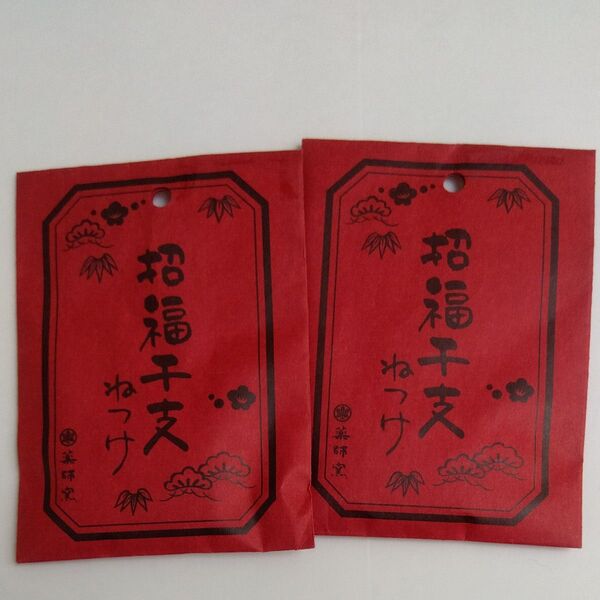 招福干支
ねつけ
薬師窯
招福干支
ねつけ
薬師窯